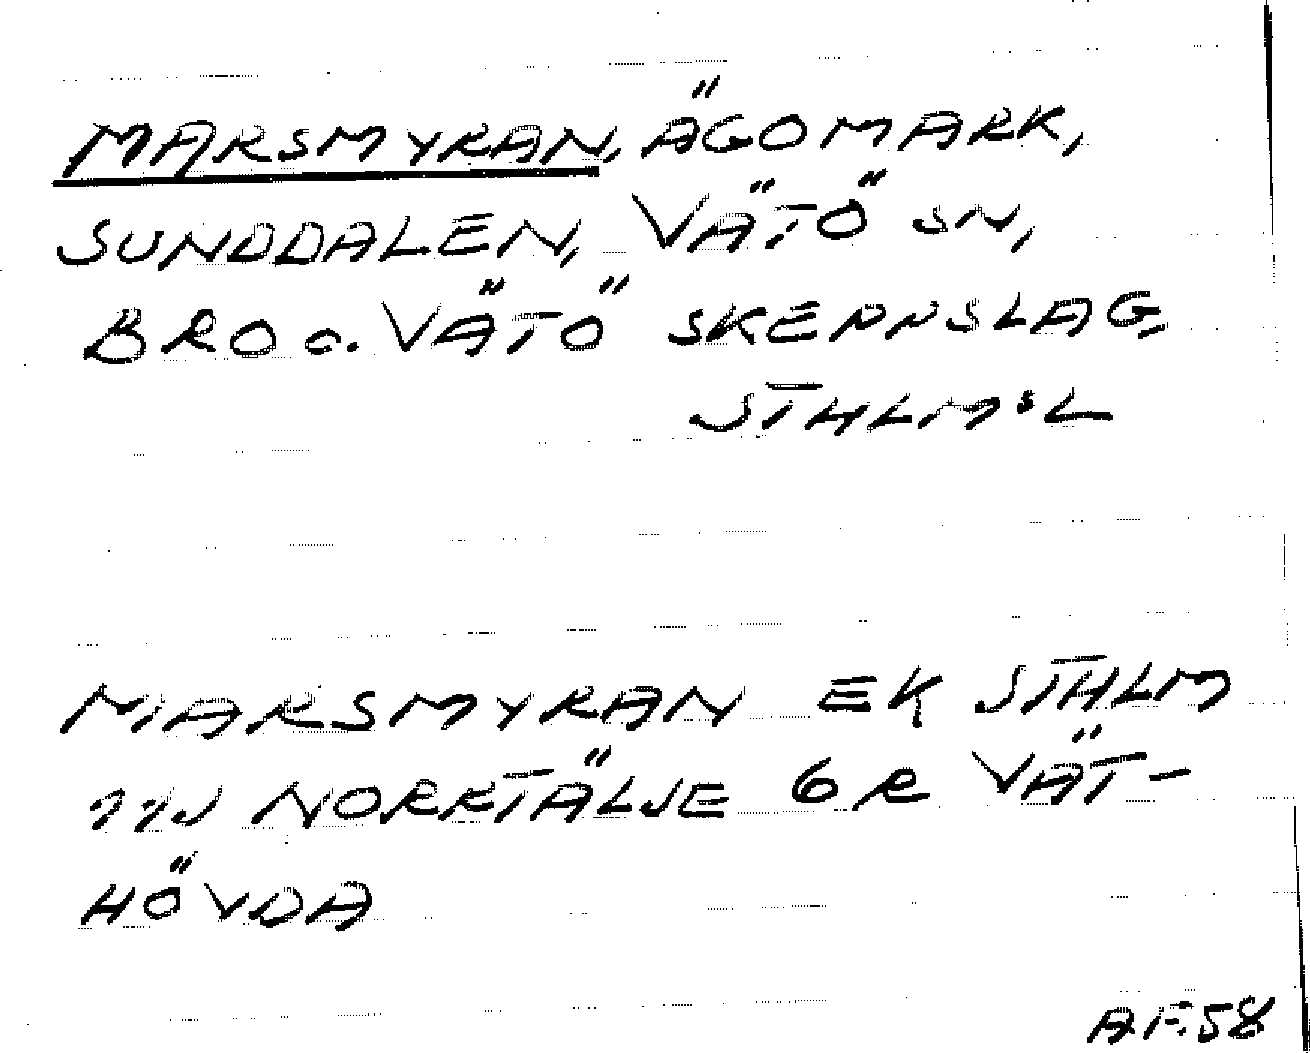 MARSMYRAN, ÄGOMARK,
SUNDDALEN, VÄTÖ SN,
BRO o. VÄTÖ SKEPPSLAG,
STHLM:S L
MARSMYRAN EK STHLM
11J NORRTÄLJE 6 R VÄT-
HÖVDA
A.F. 58